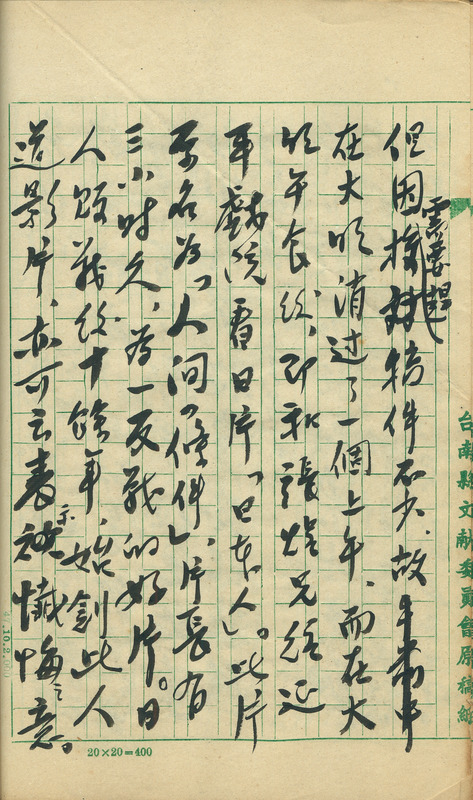 但因需要趕稿件不少、故
在大明消過了一個上午、而在大
明午食後、即和張兄經延
平戲院看日片「日本人」。此片
原名為「人間の條件」、片長有
三小時久、為一反戰的好片。日
人戰後十餘年、始創此人
道影片、亦可云表示懺悔之意。
台南縣文獻委員會原稿紙
20×20=400